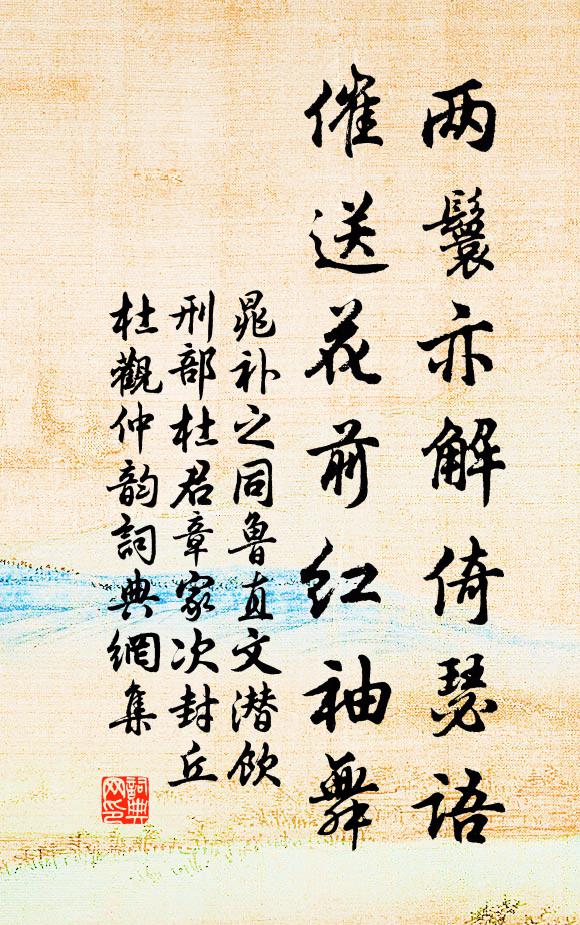 两鬟亦解倚瑟语
催送花前红袖舞
晁补之同鲁直文潜饮
刑部杜君章家次封丘
杜觀仲韵詞典網集
詞典
网印